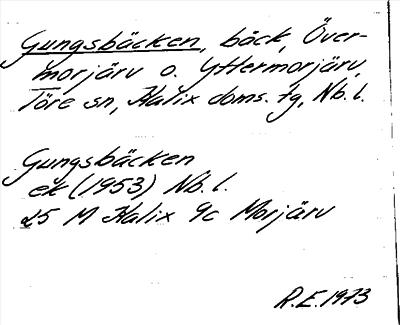 Gungsbäcken, bäck, Över-
morjärv o. Yttermorjärv,
Töre sn, Kalix doms. tg, Nb. l.
Gungsbäcken
ek (1953) Nb. l.
25 M Kalix 9c Morjärv
R.E. 1973